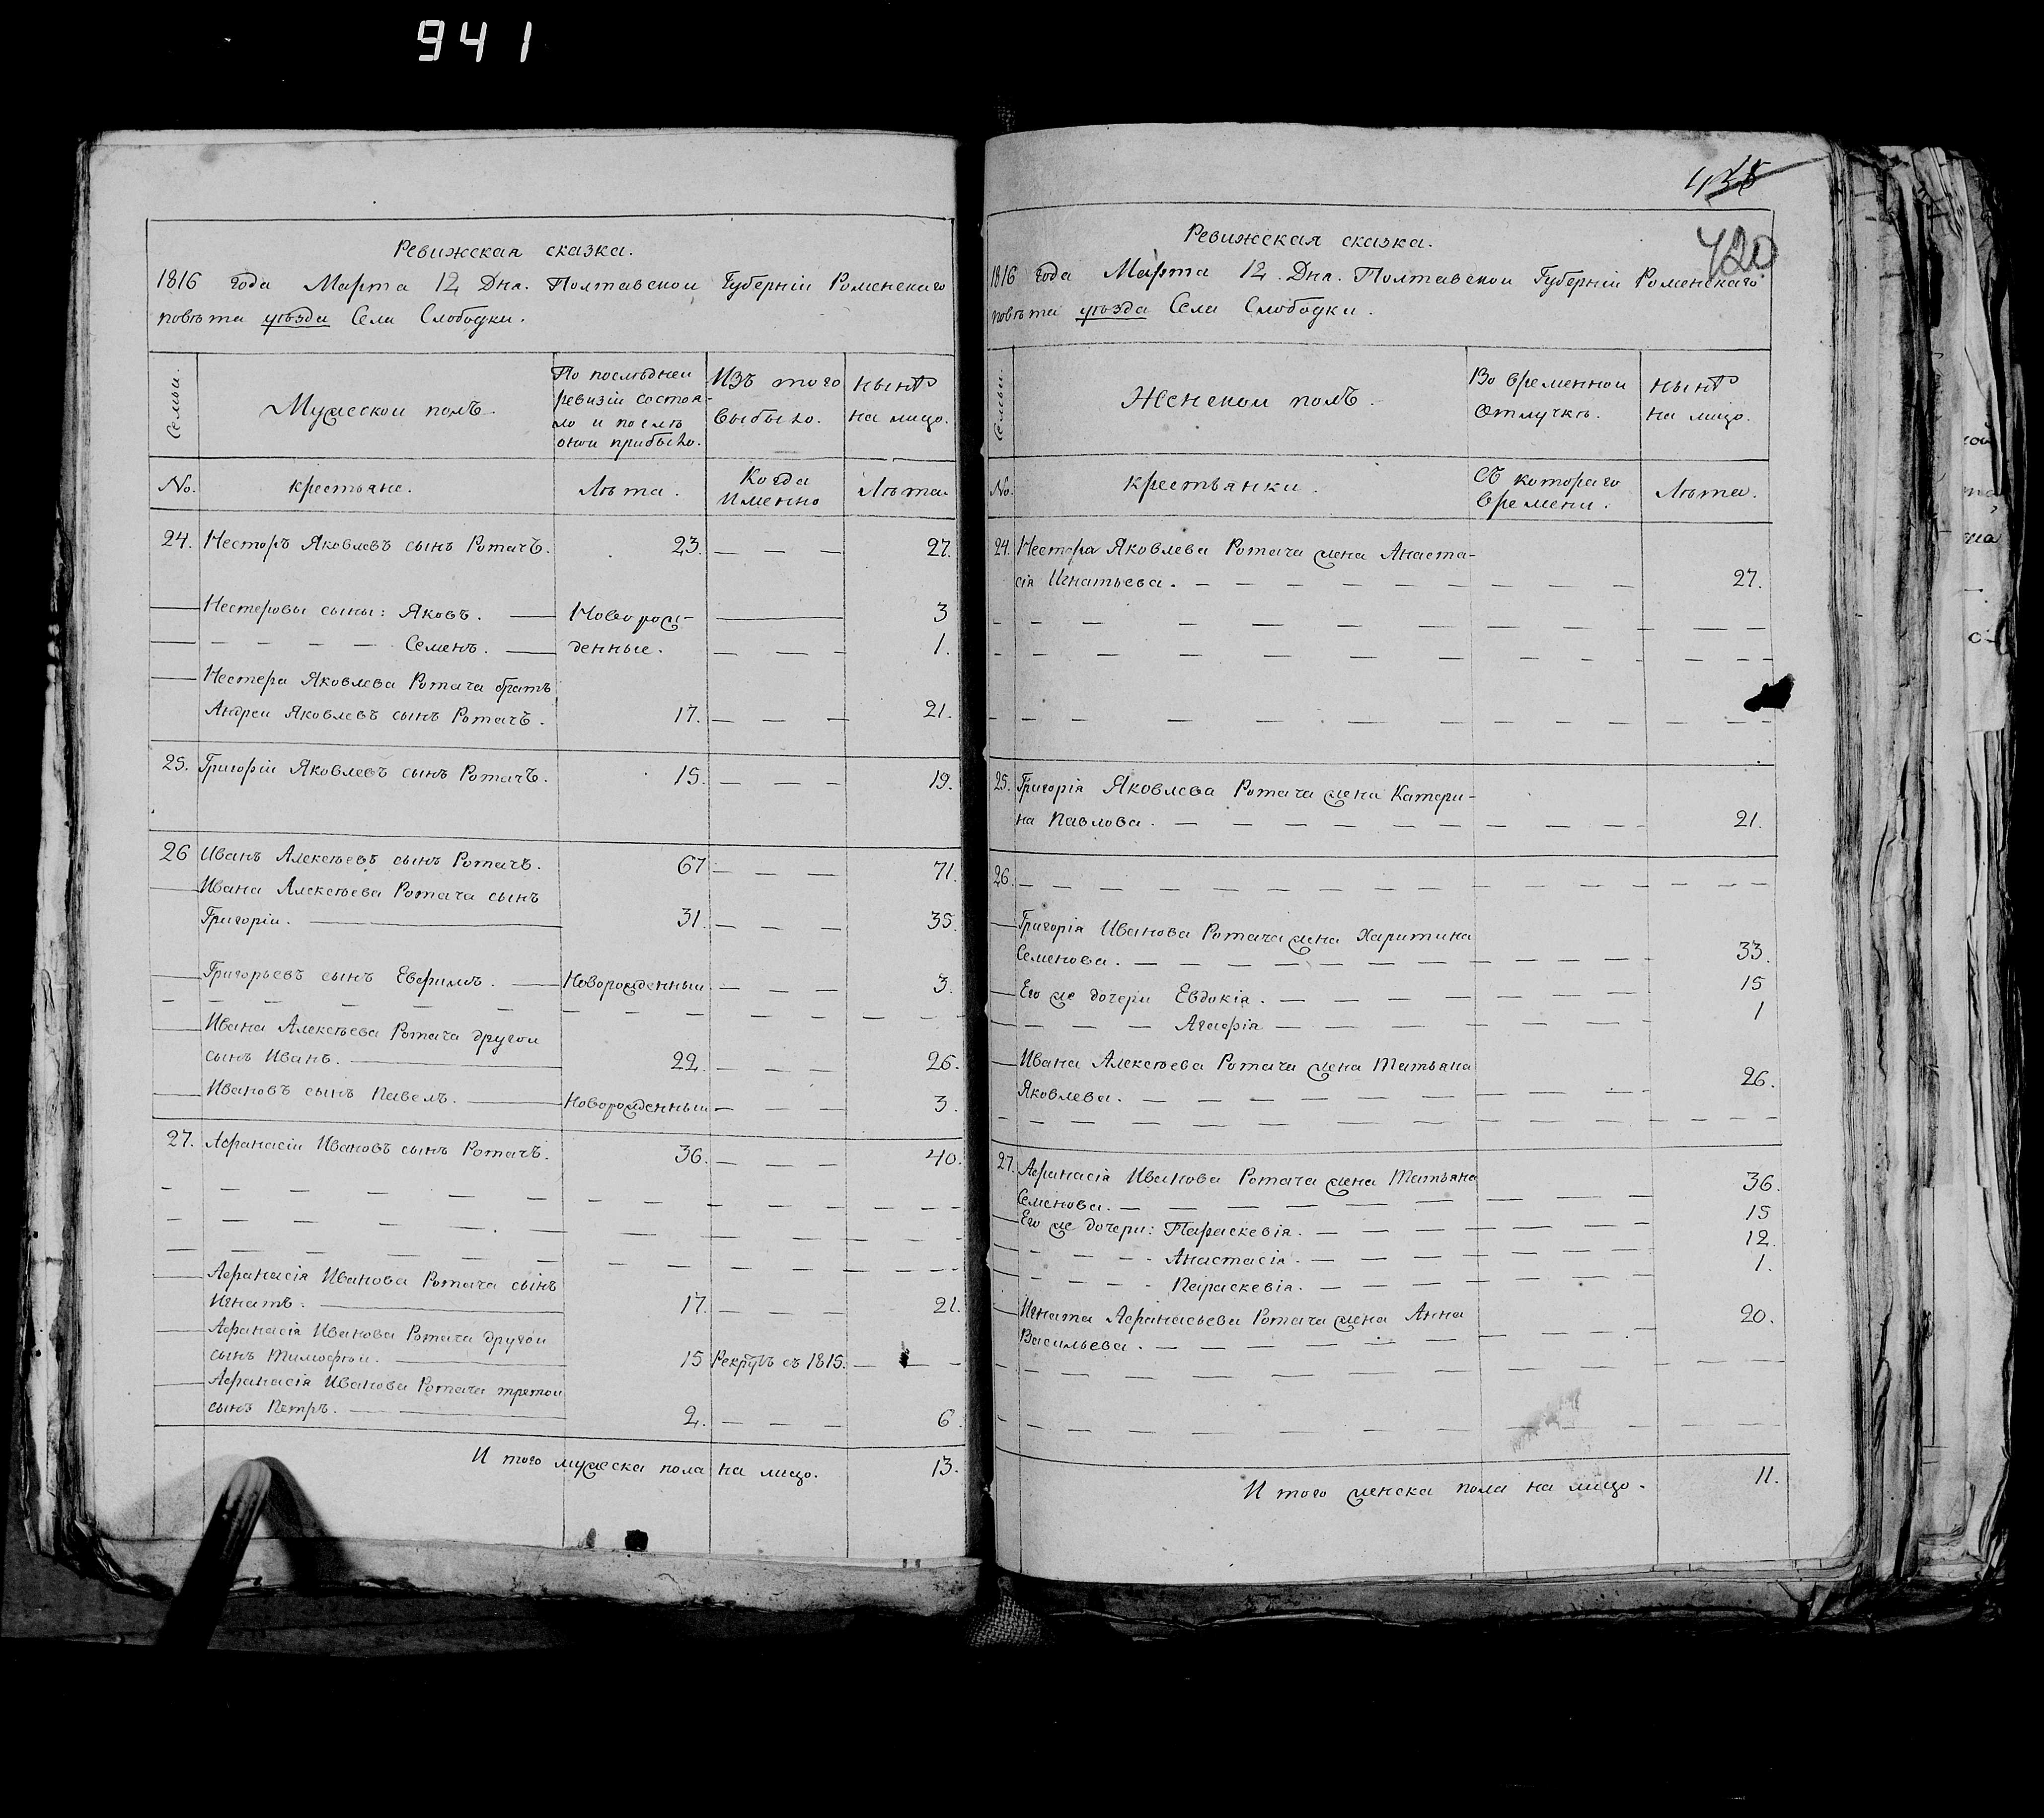 941
Ревижская сказка.
1816 года Марта 12 Дня. Полтавской Губерніи Роменскаго
повѣта уѣзда Села Слободки.
Семьи.
Мужеской полъ.
По послѣдней
ревизіи состоя-
ло и послѣ
оной прибыло.
Изъ того
выбыло.
нынѣ
на лицо.
No.
крестьяне.
Лѣта.
Когда
Именно
Лѣта.
24. Несторъ Яковлевъ сынъ Ротачъ. 23. — — — 27.
Нестеровы сыны: Яковъ. Новорож- 3
— — — Семенъ. денные. — — — 1.
Нестера Яковлева Ротача братъ
Андрей Яковлевъ сынъ Ротачъ. 17. — — — 21.
25. Григорій Яковлевъ сынъ Ротачъ. 15. — — — 19.
26 Иванъ Алексѣевъ сынъ Ротачъ. 67 — — — 71.
Ивана Алексѣева Ротача сынъ
Григорій. 31. — — — 35.
Григорьевъ сынъ Евфимъ. Новорожденный — — — 3.
Ивана Алексѣева Ротача другой
сынъ Иванъ. 22. — — — 26.
Ивановъ сынъ Павелъ. Новорожденный — — — 3.
27. Афанасій Ивановъ сынъ Ротачъ. 36. — — — 40.
Афанасія Иванова Ротача сынъ
Игнатъ. 17. — — — 21.
Афанасія Иванова Ротача другой
сынъ Тимофѣй. 15 Рекрутъ съ 1815. — — —
Афанасія Иванова Ротача третой
сынъ Петръ. 2. — — — 6.
И того мужеска пола на лицо. 13.
420
Ревижская сказка.
1816 года Марта 12 Дня. Полтавской Губерніи Роменскаго
повѣта уѣзда Села Слободки.
Семьи.
Женской полъ.
Во временной
Отлучкѣ.
нынѣ
на лицо.
No.
крестьянки.
Съ котораго
времени.
Лѣта.
24. Нестера Яковлева Ротача жена Анаста-
сія Игнатьева. — — — 27.
25. Григорія Яковлева Ротача жена Катери-
на Павлова. — — — 21.
26. — — —
Григорія Иванова Ротача жена Харитина
Семенова. — — — 33.
Его же дочери Евдокія. — — — 15
— — — Агафія — — — 1
Ивана Алексѣева Ротача жена Татьяна
Яковлева. — — — 26.
27. Афанасія Иванова Ротача жена Татьяна
Семенова. — — — 36.
Его же дочери: Параскевія. — — — 15
— — — Анастасія. — — — 12
— — — Параскевія. — — — 1.
Игната Афанасьева Ротача жена Анна
Васильева. — — — 20.
И того женска пола на лицо. 11.